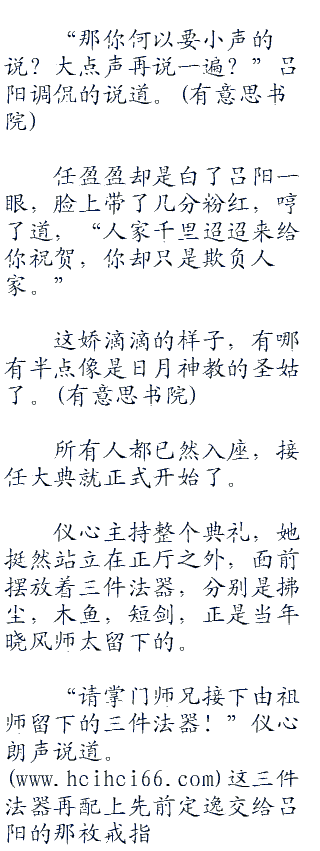 “那你何以要小声的
说？大点声再说一遍？”吕
阳调侃的说道。(有意思书
院)
任盈盈却是白了吕阳一
眼，脸上带了几分粉红，哼
了道，“人家千里迢迢来给
你祝贺，你却只是欺负人
家。”
这娇滴滴的样子，有哪
有半点像是日月神教的圣姑
了。(有意思书院)
所有人都已然入座，接
任大典就正式开始了。
仪心主持整个典礼，她
挺然站立在正厅之外，面前
摆放着三件法器，分别是拂
尘，木鱼，短剑，正是当年
晓风师太留下的。
“请掌门师兄接下由祖
师留下的三件法器！”仪心
朗声说道。
(www.hcihci66.com)这三件
法器再配上先前定逸交给吕
阳的那枚戒指